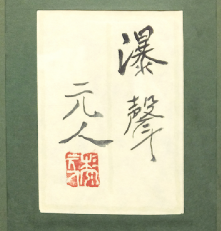 瀑聲
元人